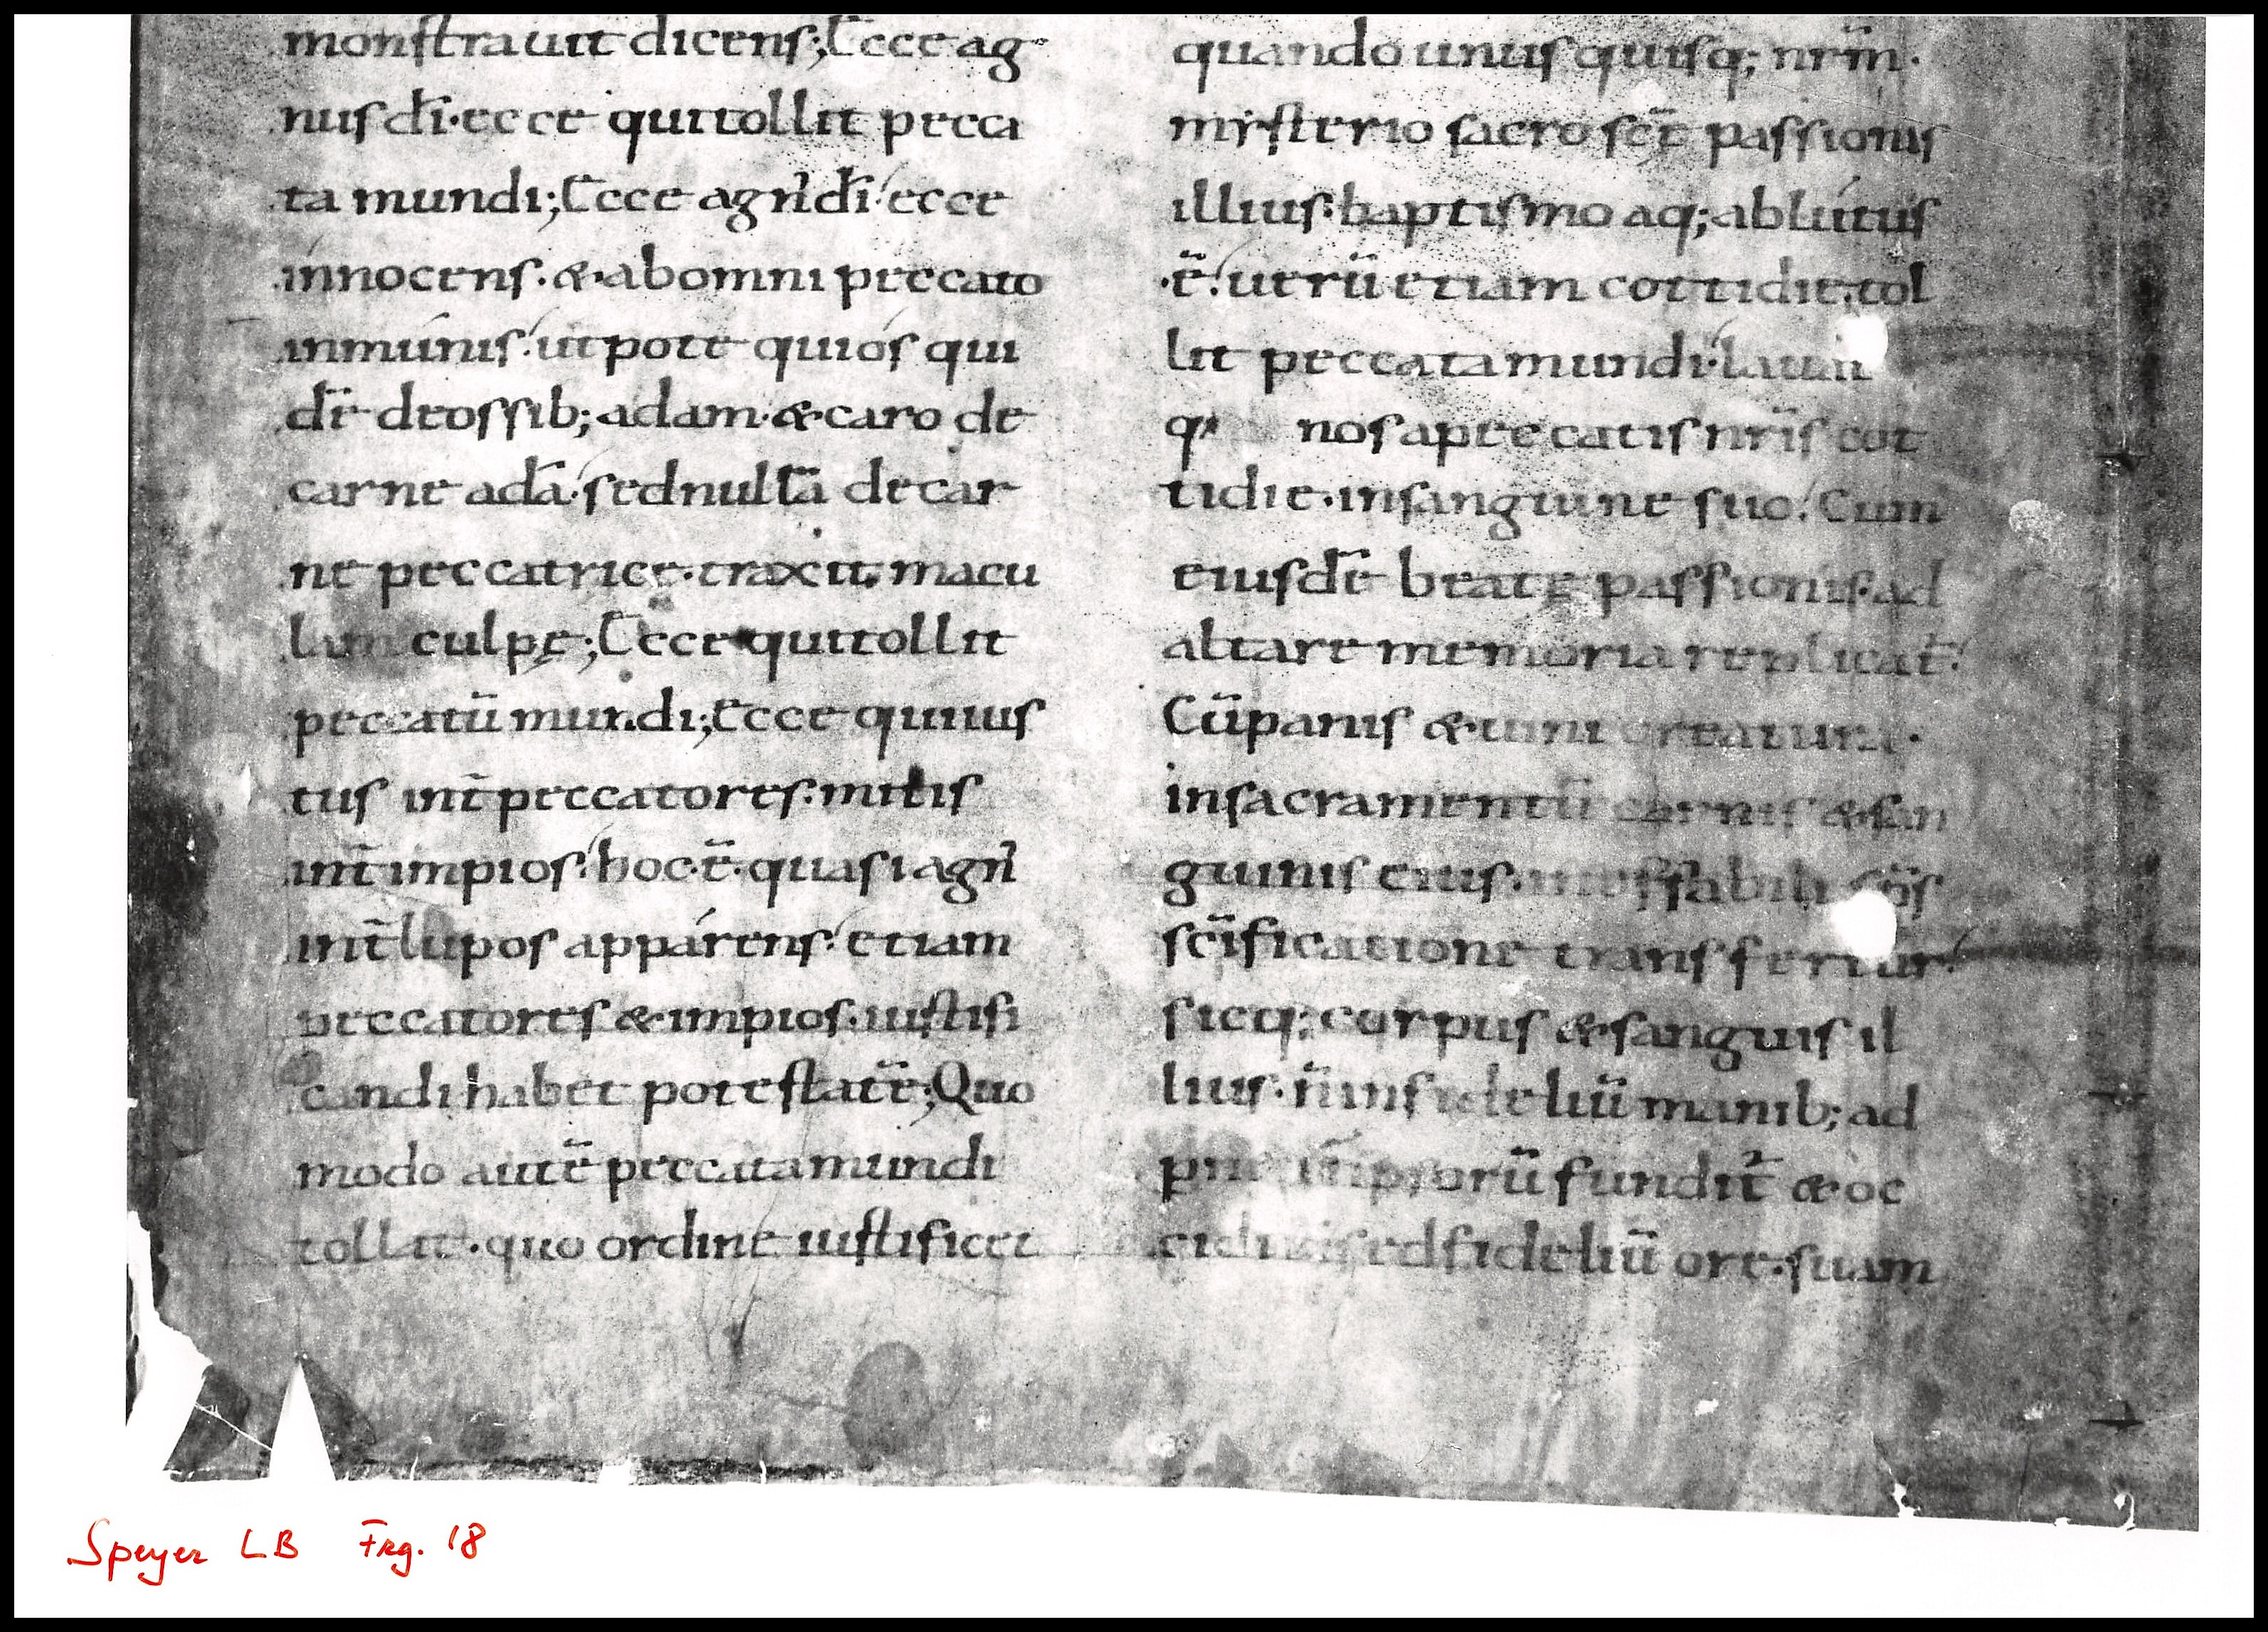 monstrauit dicens; Ecce ag
nus dī· ecce qui tollit pecca
ta mundi; Ecce agn᾽ dī· ecce
innocens· & ab omni peccato
inmunis· utpote qui ós qui
dē de ossib; adam· & caro de
carne adā· sed nullā de car
ne peccatrice· traxit macu
lam culpę; Ecce qui tollit
peccatū mundi; Ecce qui ius
tus int̄ peccatores· mitis
int̄ impios· hoc· ē· quasi agn᾽
int̄ lupos apparens· etiam
peccatores & impios· iustifi
candi habet potestatē; Quo
modo autē peccata mundi
tollat· quo ordine iustificet
quando unusquisq; nrm̄·
mysterio sacro scę̄ passionis
illius· baptismo aq; ablutus
·ē· uerū etiam cottidie· tol
lit peccata mundi· lauit
q; nos a peccatis nrīs cot
tidie· in sanguine suo· Cum
eiusdē beatę passionis· ad
altare memoria replicat᾽
Cū panis & uini creatura·
in sacramentū carnis & san
guinis eius· ineffabili sp̄s
scīficatione transfertur·
sicq; corpus & sanguis il
lius· n̄ infidelium manib; ad
impiorū fundit᾽ & oc
sed fideliū ore· suam
Speyer LB Frg. 18